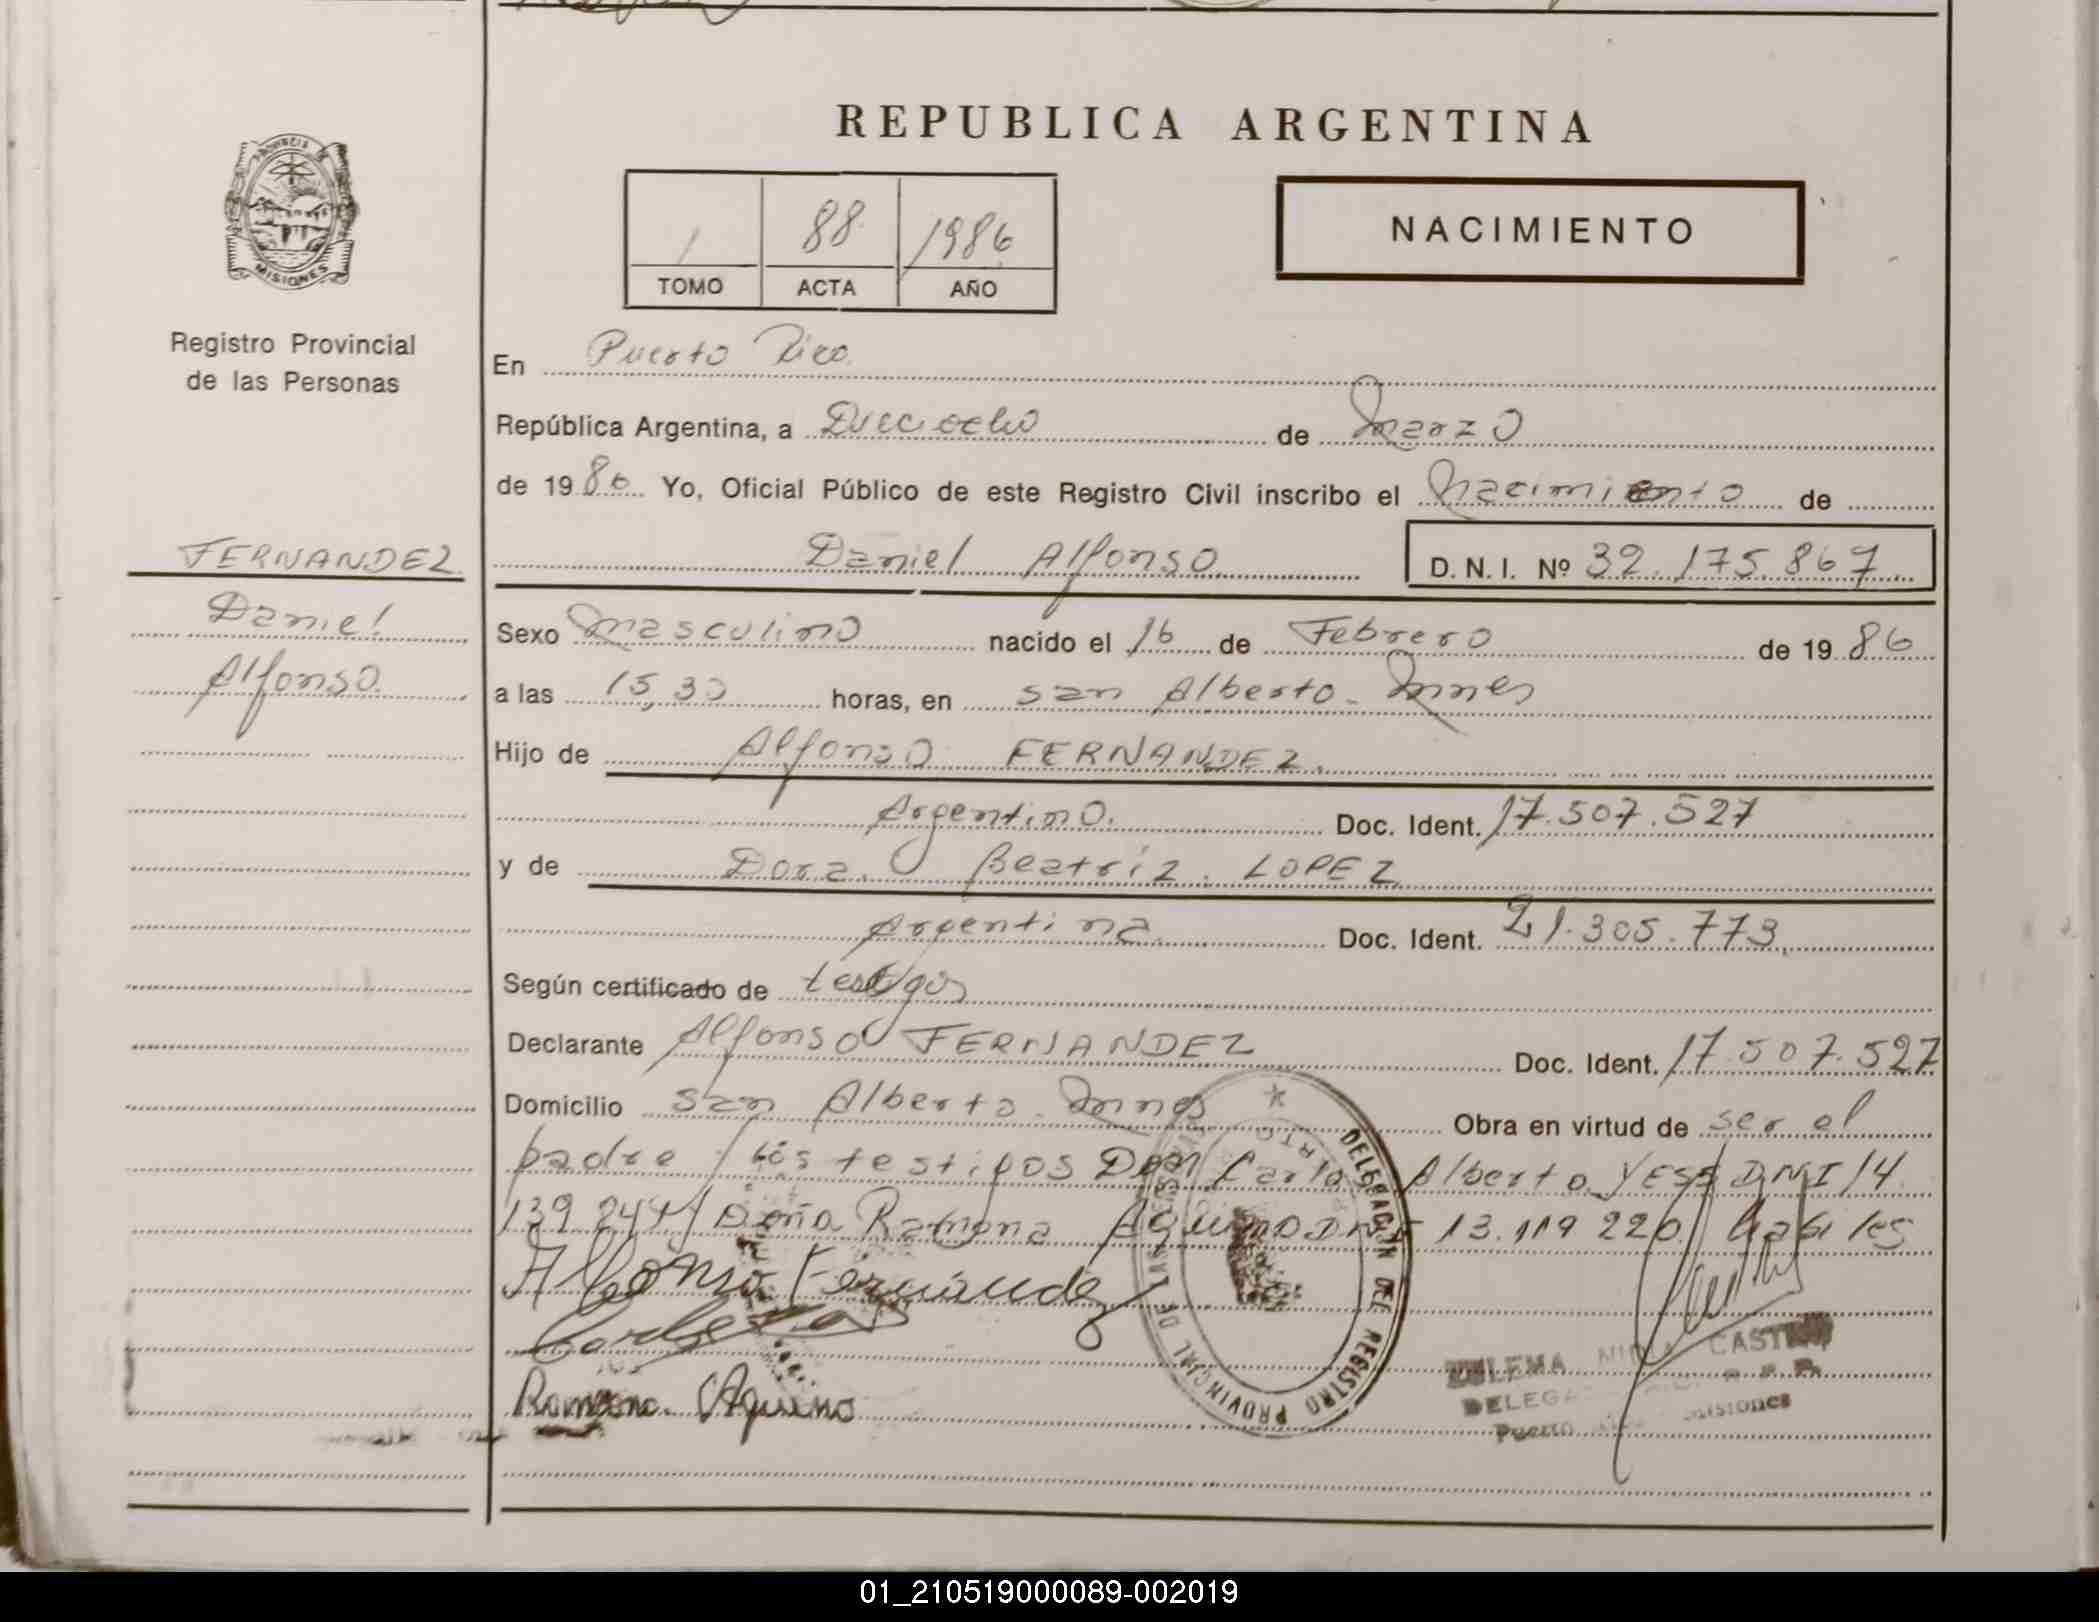 REPUBLICA ARGENTINA
PROVINCIA DE
MISIONES
Registro Provincial
de las Personas
1 88 1986
TOMO ACTA AÑO
NACIMIENTO
En Puerto Rico
República Argentina, a Dieciocho de Marzo
de 1986 Yo, Oficial Público de este Registro Civil inscribo el Nacimiento de
FERNANDEZ
Daniel
Alfonso
Daniel Alfonso D. N. I. Nº 32.175.867
Sexo Masculino nacido el 16 de Febrero de 1986
a las 15,30 horas, en San Alberto - Mnes
Hijo de Alfonso FERNANDEZ.
Argentino. Doc. Ident. 17.507.527
y de Dora Beatriz LOPEZ
Argentina Doc. Ident. 21.305.773
Según certificado de testigos
Declarante Alfonso FERNANDEZ Doc. Ident. 17.507.527
Domicilio San Alberto - Mnes Obra en virtud de ser el
padre / los testigos Don Carlos Alberto YESS DNI 14
139 / Doña Ramona Aquino DNI 13.119 220
Alfonso Fernández
Ramona Aquino
DELEGACIÓN DE REGISTRO PROVINCIAL DE LAS
CASTRO
Puerto Misiones
01_210519000089-002019